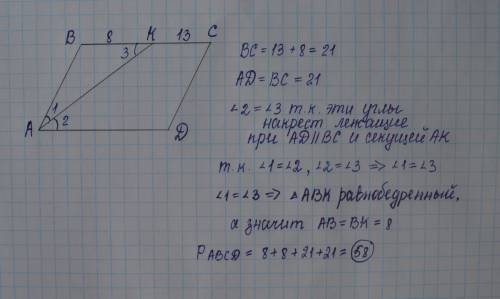 B 8 K 13 C
3
A 1 2 D
BC = 13 + 8 = 21
AD = BC = 21
∠2 = ∠3 т.к. эти углы
накрест лежащие
при AD || BC и секущей AK
т.к. ∠1 = ∠2, ∠2 = ∠3 => ∠1 = ∠3
∠1 = ∠3 => △ABK равнобедренный,
а значит AB = BK = 8
P ABCD = 8 + 8 + 21 + 21 = 58